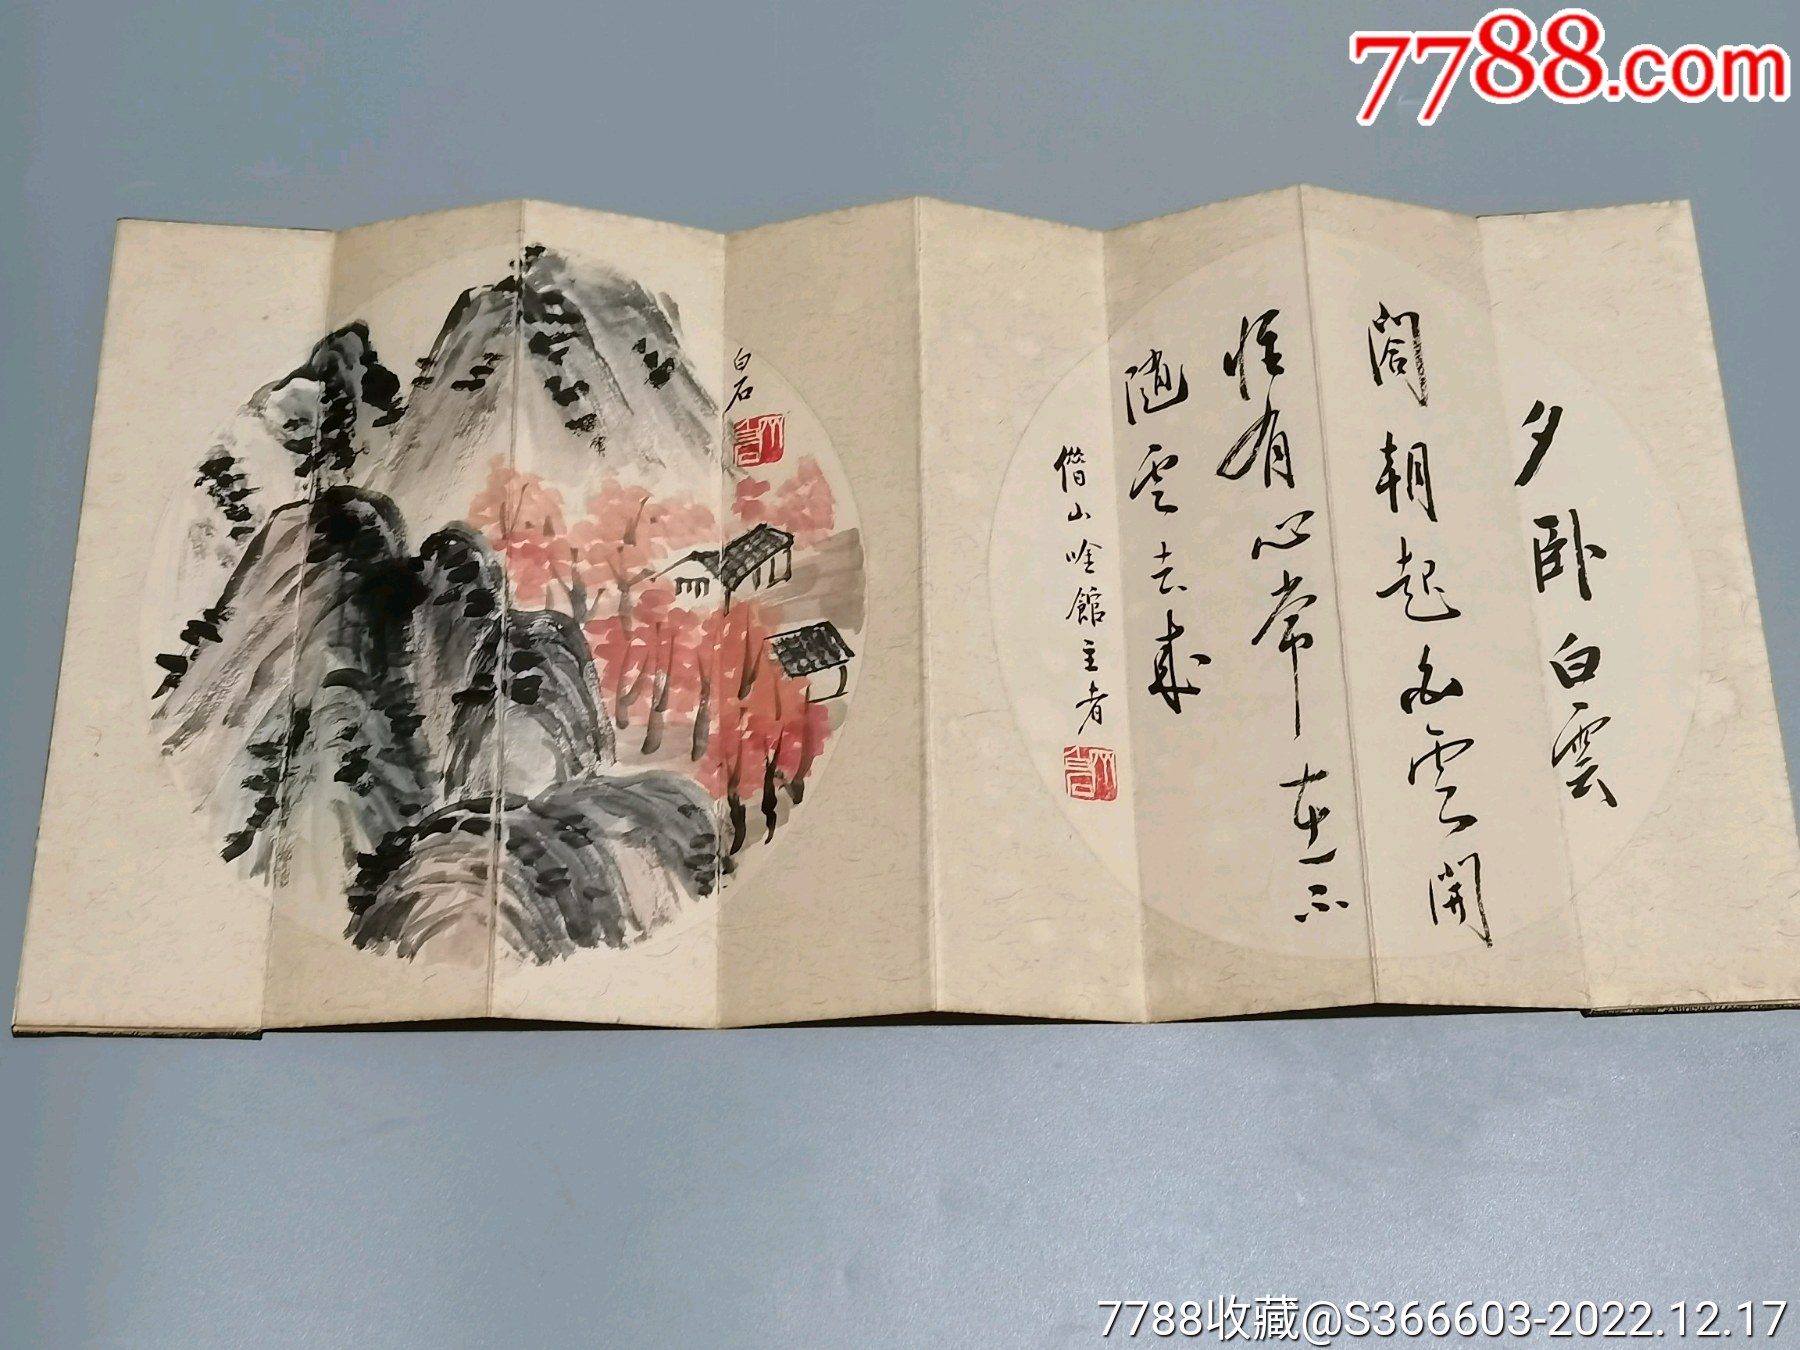 7788.com
夕卧白雲
閤朝起白雲開
惟有心常在不
隨雲去来
借山吟館主者
白石
7788收藏@S366603-2022.12.17